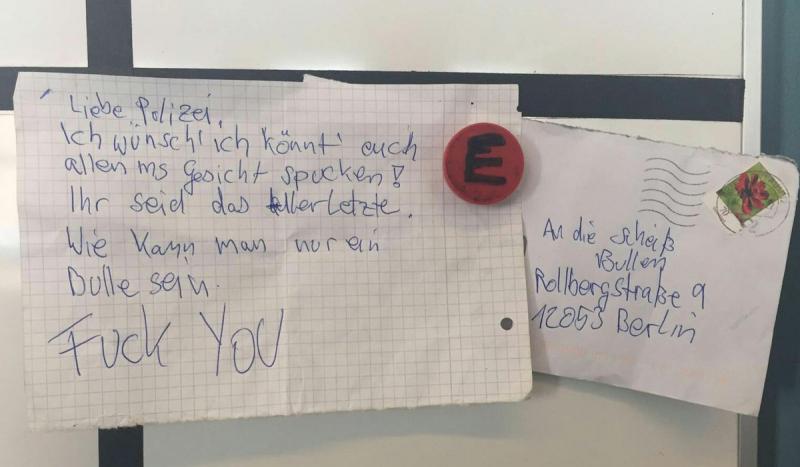 Liebe Polizei,
Ich wünsch' ich könnt' euch
allen ins Gesicht spucken!
Ihr seid das Allerletzte.
Wie kann man nur ein
Bulle sein.
FUCK YOU
E
An die scheiß
Bullen
Rollbergstraße 9
12053 Berlin